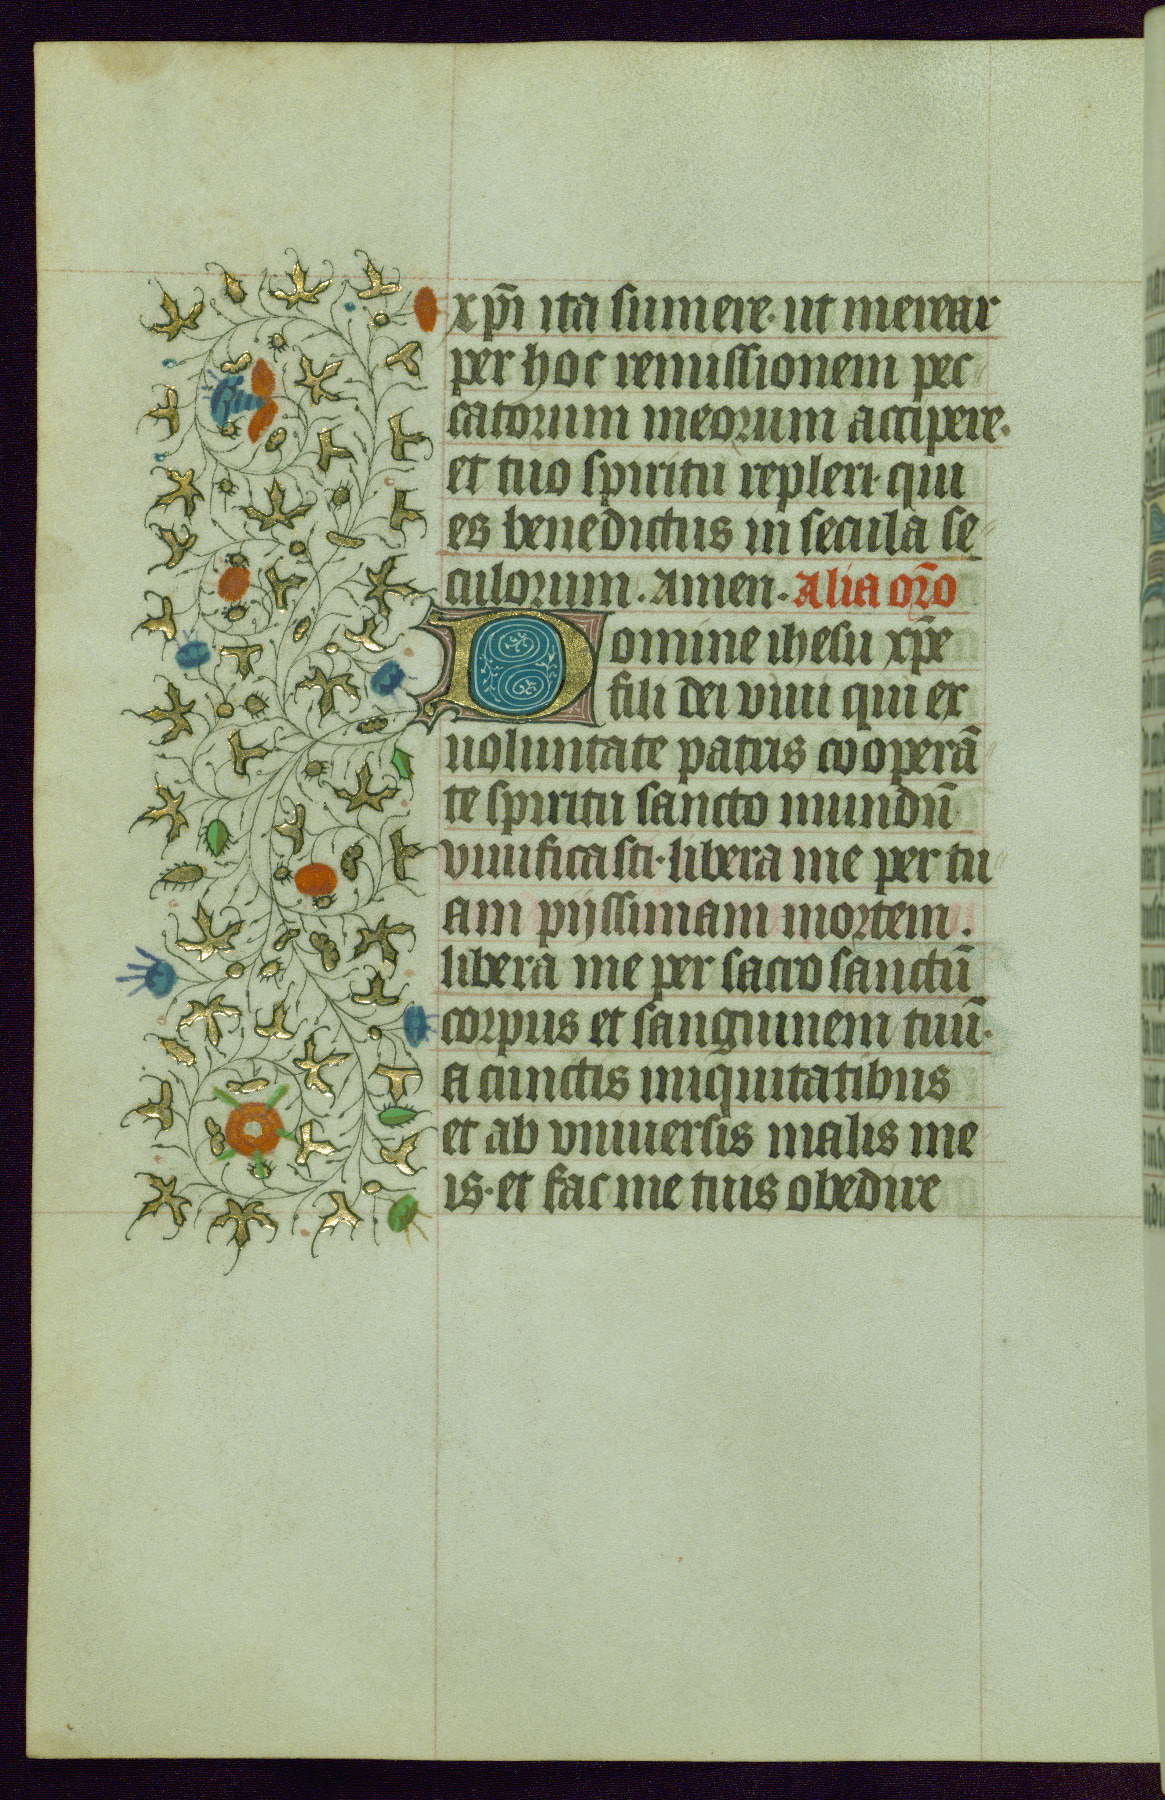 xp̄i ita sumere· ut merear
per hoc remissionem pec
catorum meorum accipere·
et tuo spiritu repleri· qui
es benedictus in secula se
culorum. Amen. Alia or̄o
Domine ihesu xp̄e
fili dei viui qui ex
uoluntate patris cooperā
te spiritu sancto mundū
viuificasti· libera me per tu
am pijssimam mortem.
libera me per sacro sanctū
corpus et sanguinem tuū·
A cunctis iniquitatibus
et ab vniuersis malis me
is· et fac me tuis obedire